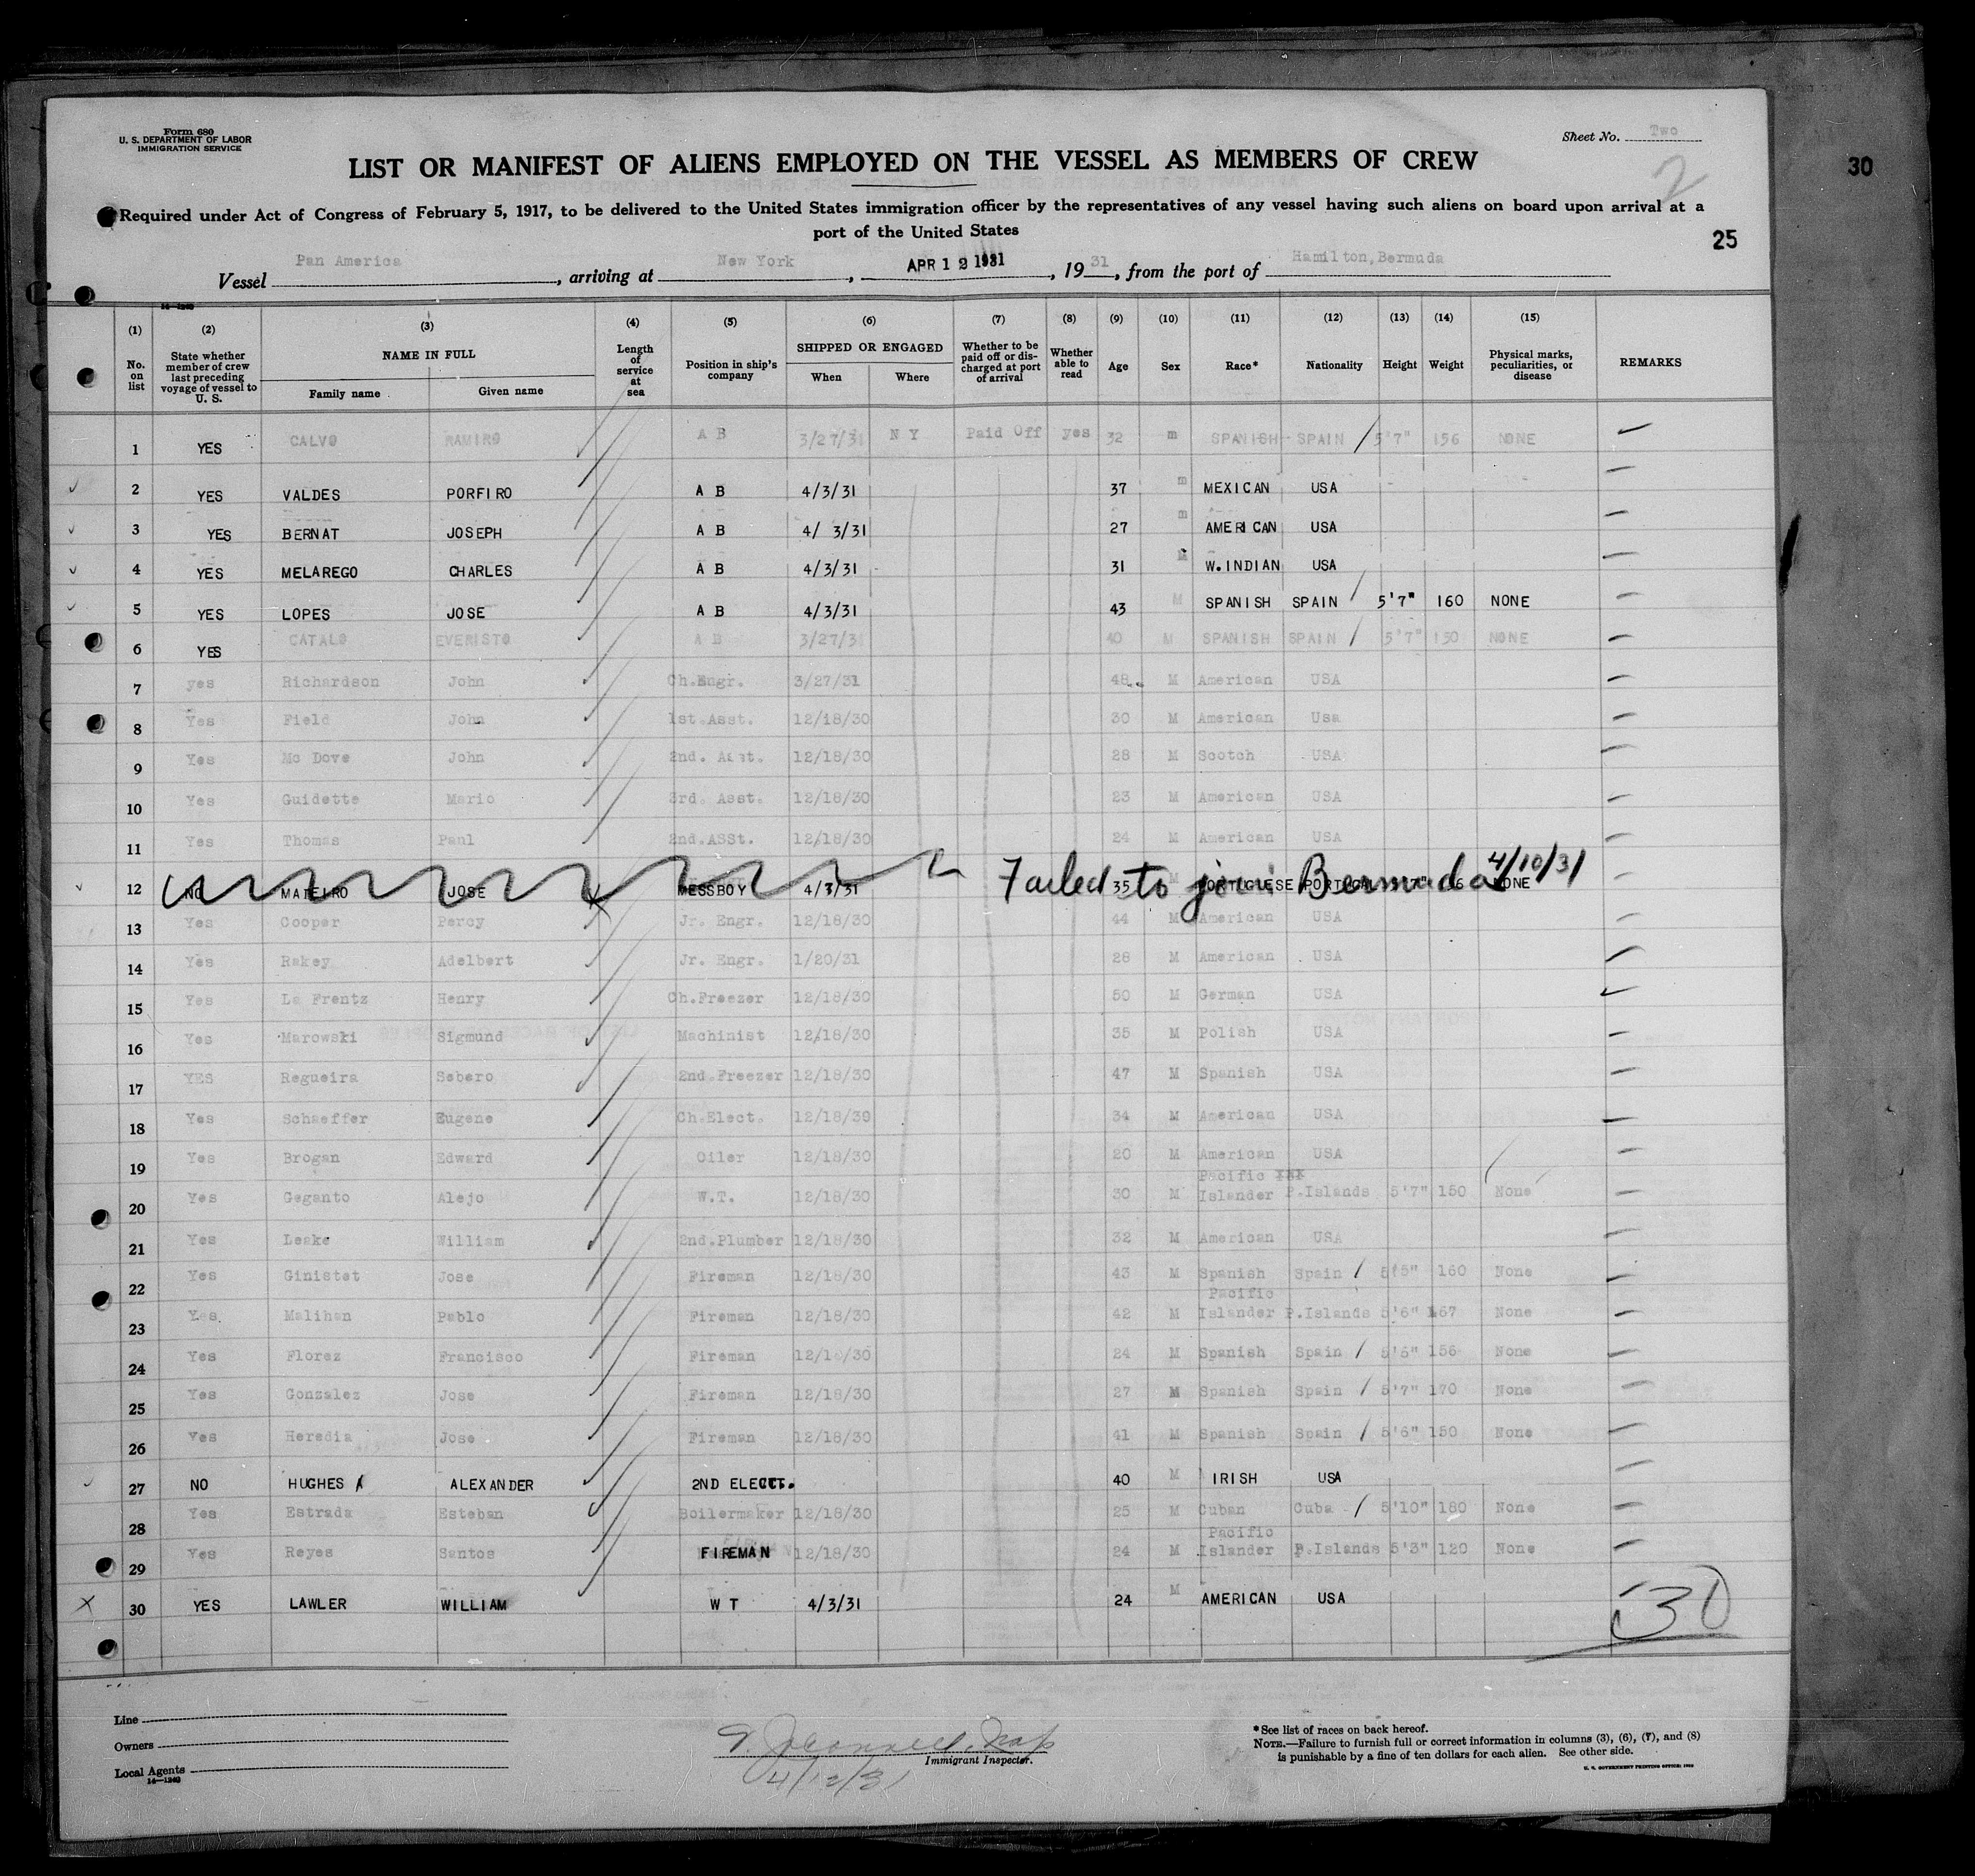 Form 680
U. S. DEPARTMENT OF LABOR
IMMIGRATION SERVICE
Sheet No. Two
2
30
LIST OR MANIFEST OF ALIENS EMPLOYED ON THE VESSEL AS MEMBERS OF CREW
Required under Act of Congress of February 5, 1917, to be delivered to the United States immigration officer by the representatives of any vessel having such aliens on board upon arrival at a
port of the United States
25
Vessel Pan America, arriving at New York, APR 12 1931, 1931, from the port of Hamilton, Bermuda
14—1240
(1) (2) (3) (4) (5) (6) (7) (8) (9) (10) (11) (12) (13) (14) (15)
No. on list State whether member of crew last preceding voyage of vessel to U. S. NAME IN FULL Family name Given name Length of service at sea Position in ship's company SHIPPED OR ENGAGED When Where Whether to be paid off or discharged at port of arrival Whether able to read Age Sex Race* Nationality Height Weight Physical marks, peculiarities, or disease REMARKS
1 YES CALVO RAMIRO A B 3/27/31 N Y Paid Off yes 32 m SPANISH SPAIN / 5'7" 156 NONE
2 YES VALDES PORFIRO A B 4/3/31 37 m MEXICAN USA
3 YES BERNAT JOSEPH A B 4/ 3/31 27 m AMERICAN USA
4 YES MELAREGO CHARLES A B 4/3/31 31 M W.INDIAN USA
5 YES LOPES JOSE A B 4/3/31 43 M SPANISH SPAIN / 5'7" 160 NONE
6 YES CATALO EVERISTO A B 3/27/31 40 M SPANISH SPAIN / 5'7" 150 NONE
7 yes Richardson John Ch.Engr. 3/27/31 48 M American USA
8 Yes Field John 1st.Asst. 12/18/30 30 M American Usa
9 Yes Mc Dove John 2nd. Asst. 12/18/30 28 M Scotch USA
10 Yes Guidette Mario 3rd. Asst. 12/18/30 23 M American USA
11 Yes Thomas Paul 2nd.ASSt. 12/18/30 24 M American USA
12 NO MATEIRO JOSE MESSBOY 4/3/31 35 PORTUGUESE PORTUGAL NONE
Failed to join Bermuda 4/10/31
13 Yes Cooper Percy Jr. Engr. 12/18/30 44 M American USA
14 Yes Rakey Adelbert Jr. Engr. 1/20/31 28 M American USA
15 Yes La Frentz Henry Ch.Freezer 12/18/30 50 M German USA
16 Yes Marowski Sigmund Machinist 12/18/30 35 M Polish USA
17 YES Regueira Sebero 2nd.Freezer 12/18/30 47 M Spanish USA
18 Yes Schaeffer Eugene Ch.Elect. 12/18/30 34 M American USA
19 Yes Brogan Edward Oiler 12/18/30 20 M American USA
20 Yes Geganto Alejo W.T. 12/18/30 30 M Pacific Islander P.Islands 5'7" 150 None
21 Yes Leake William 2nd.Plumber 12/18/30 32 M American USA
22 Yes Ginistet Jose Fireman 12/18/30 43 M Spanish Spain / 5'5" 160 None
23 Yes Malihan Pablo Fireman 12/18/30 42 M Pacific Islander P.Islands 5'6" 167 None
24 Yes Florez Francisco Fireman 12/18/30 24 M Spanish Spain / 5'6" 156 None
25 Yes Gonzalez Jose Fireman 12/18/30 27 M Spanish Spain / 5'7" 170 None
26 Yes Heredia Jose Fireman 12/18/30 41 M Spanish Spain / 5'6" 150 None
27 NO HUGHES ALEXANDER 2ND ELECT. 40 M IRISH USA
28 Yes Estrada Esteban Boilermaker 12/18/30 25 M Cuban Cuba / 5'10" 180 None
29 Yes Reyes Santos FIREMAN 12/18/30 24 M Pacific Islander P.Islands 5'3" 120 None
30 YES LAWLER WILLIAM W T 4/3/31 24 M AMERICAN USA
30
Line
Owners
Local Agents
14—1240
Immigrant Inspector.
4/12/31
*See list of races on back hereof.
NOTE.—Failure to furnish full or correct information in columns (3), (6), (7), and (8)
is punishable by a fine of ten dollars for each alien. See other side.